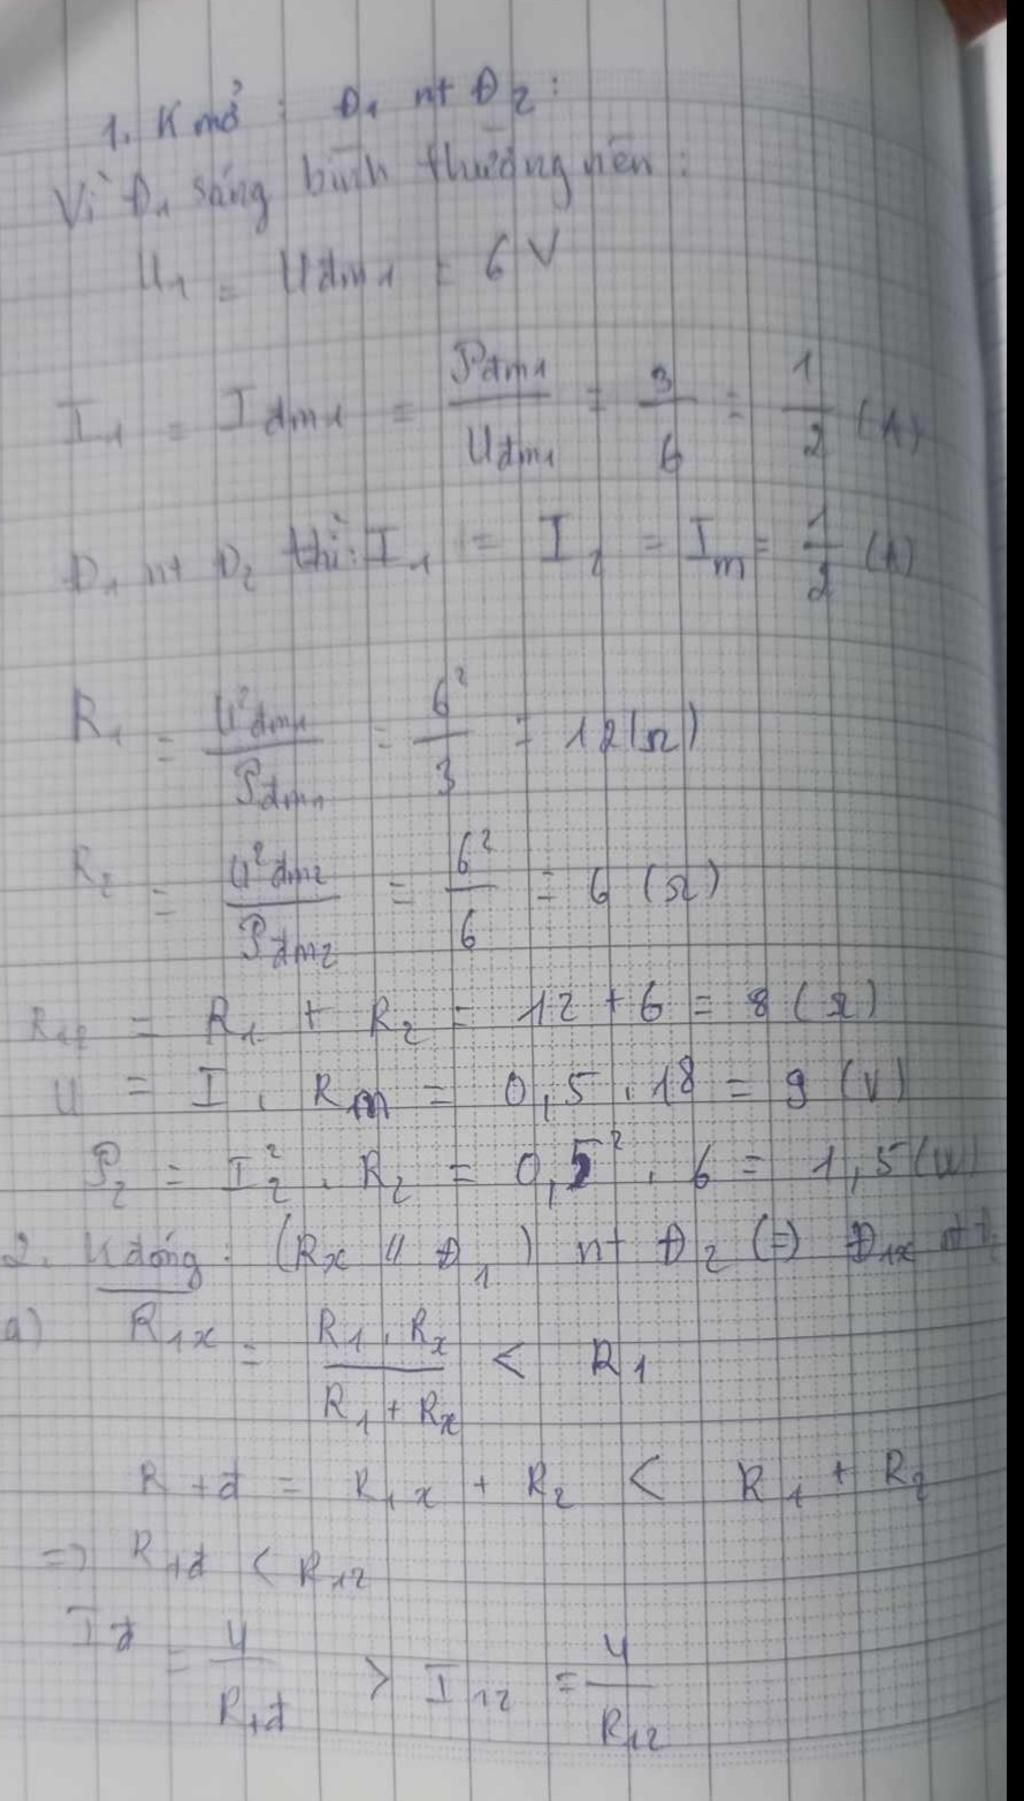 1. K mở : Đ1 nt Đ2 :
Vì Đ1 sáng bình thường nên :
U1 = Uđm1 = 6 V
I1 = Iđm1 = Pđm1 / Uđm1 = 3/6 = 1/2 (A)
Đ1 nt Đ2 thì : I1 = I2 = Im = 1/2 (A)
R1 = U²đm1 / Pđm1 = 6²/3 = 12 (Ω)
R2 = U²đm2 / Pđm2 = 6²/6 = 6 (Ω)
R12 = R1 + R2 = 12 + 6 = 8 (Ω)
U = I . Rm = 0,5 . 18 = 9 (V)
P2 = I2² . R2 = 0,5² . 6 = 1,5 (W)
2. K đóng : (Rx // Đ1) nt Đ2 (=) Đ1x nt Đ2
a) R1x = R1 . Rx / R1 + Rx < R1
R+đ = R1x + R2 < R1 + R2
=> R+đ < R12
Iđ = U / R+đ > I12 = U / R12